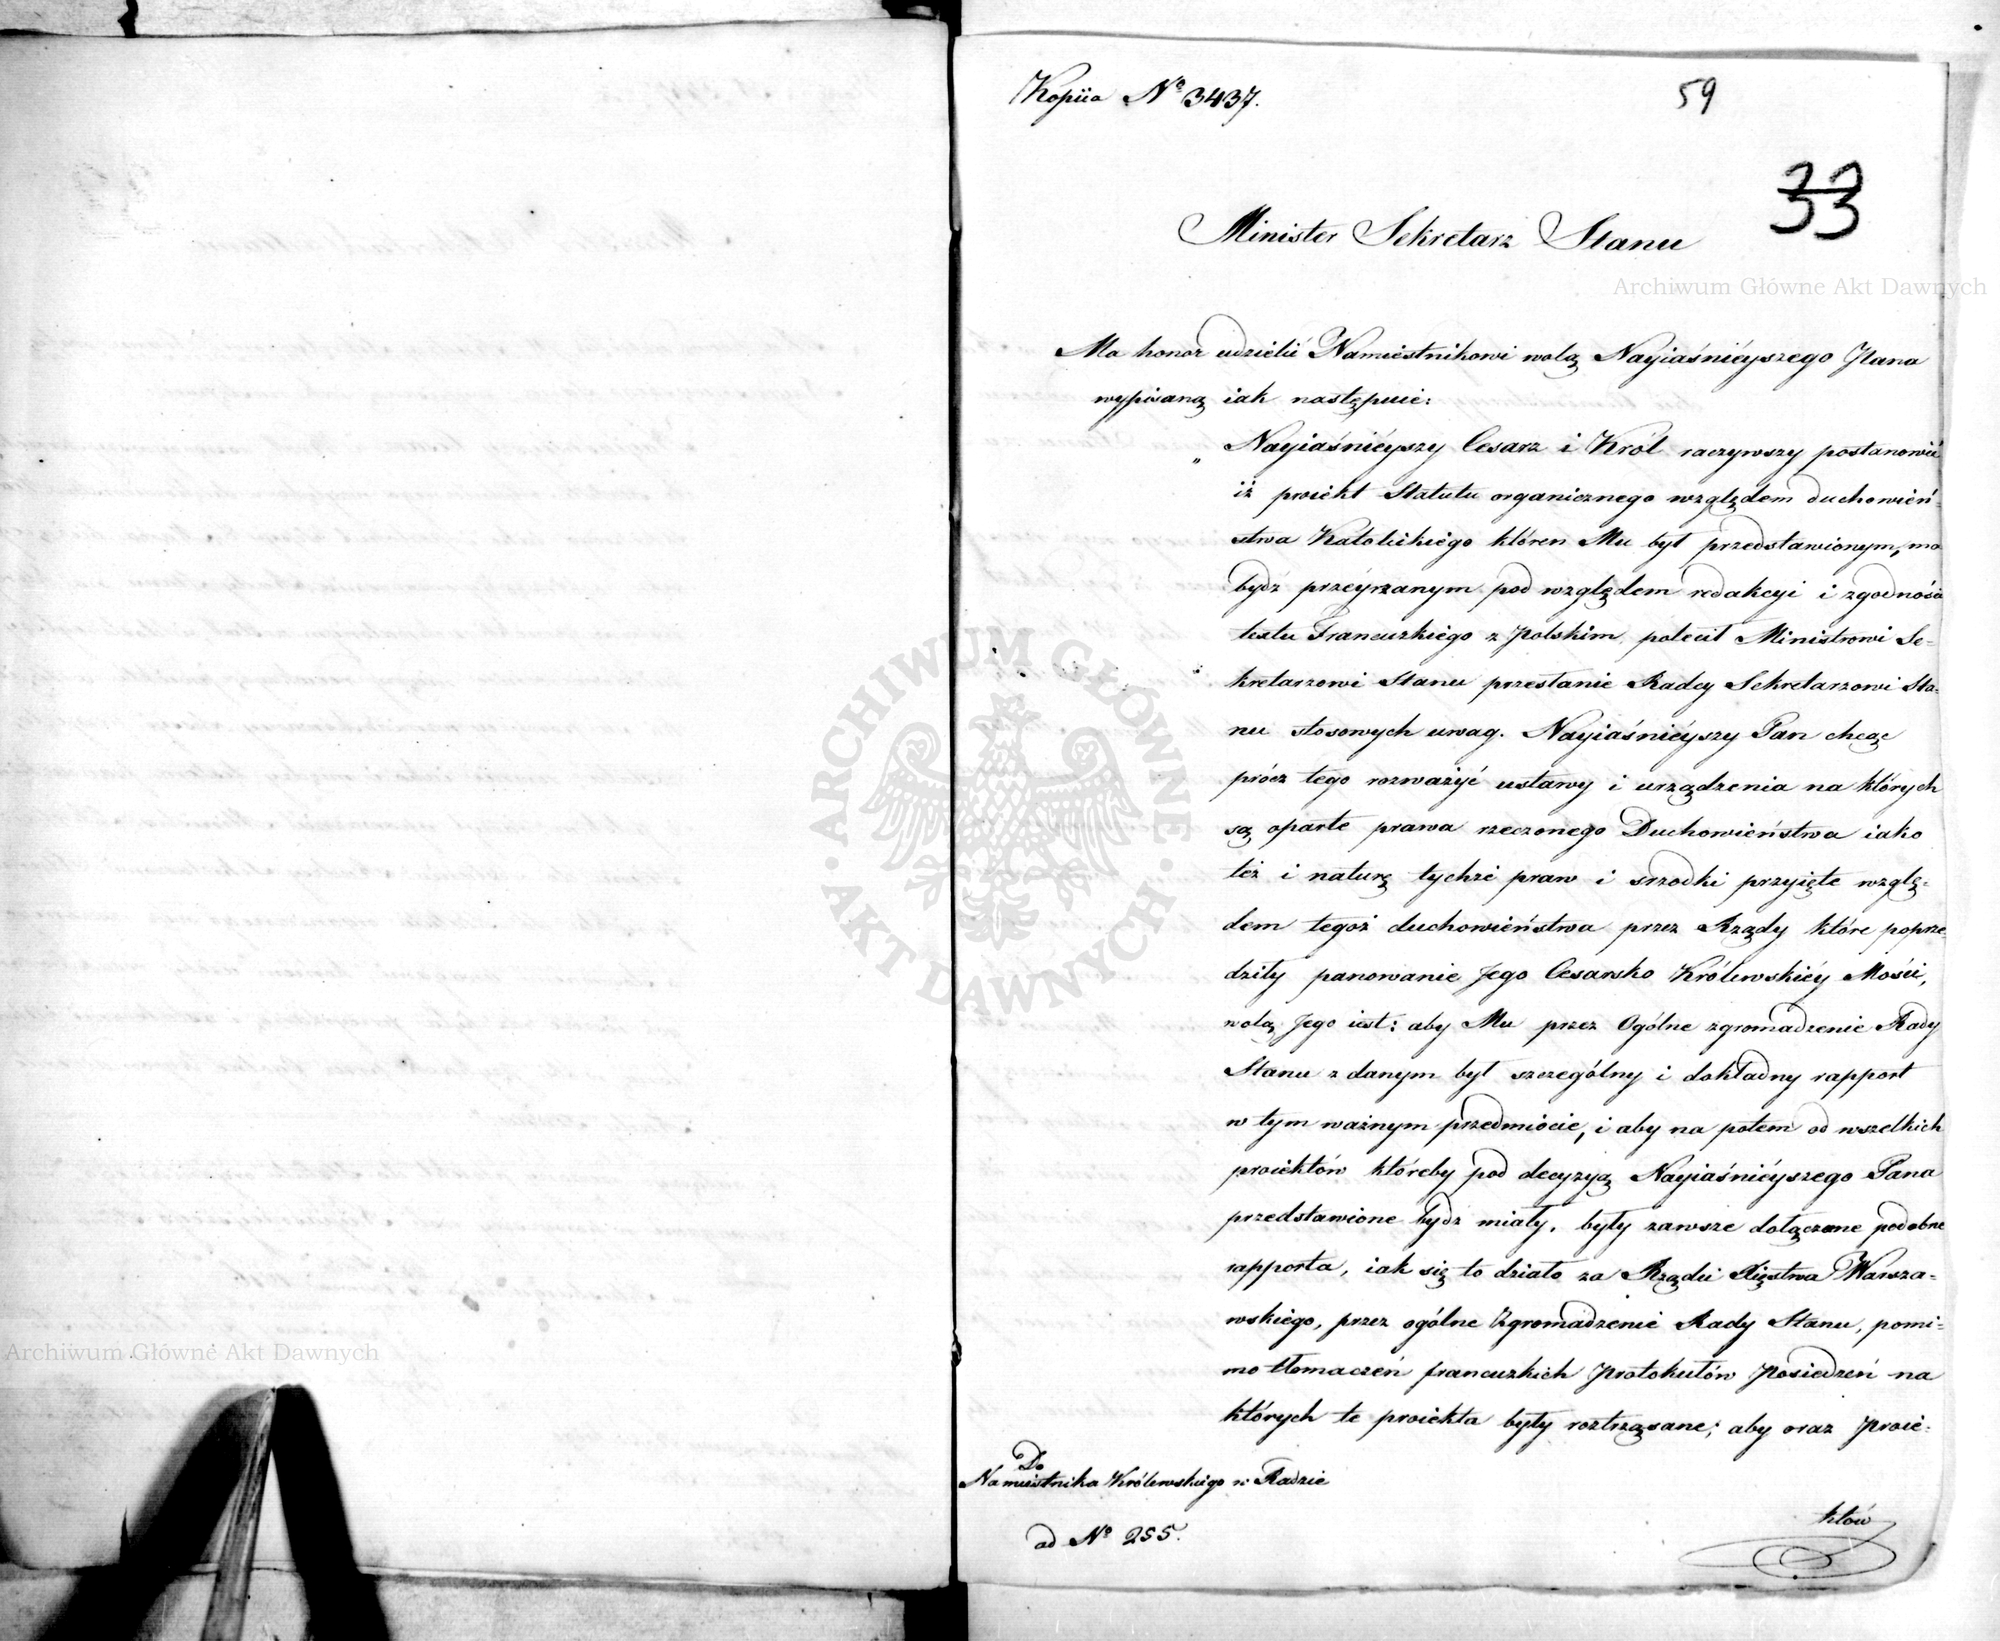 Kopiia Nº 3437.
59
33
Minister Sekretarz Stanu
Archiwum Główne Akt Dawnych
Ma honor udzielić Namiestnikowi wolą Nayiaśnieyszego Pana
wypisaną iak następuie:
„ Nayiaśnieyszy Cesarz i Król raczywszy postanowić
iż proiekt Statutu organicznego względem duchowień-
stwa Katolickiego któren Mu był przedstawionym, ma
bydź przeyrzanym pod względem redakcyi i zgodności
textu Francuzkiego z Polskim, polecił Ministrowi Se-
kretarzowi Stanu przesłanie Radcy Sekretarzowi Sta-
nu stosowych uwag. Nayiaśnieyszy Pan chcąc
prócz tego rozważyć ustawy i urządzenia na których
są oparte prawa rzeczonego Duchowieństwa iako
też i naturę tychże praw i srzodki przyięte wzglę-
dem tegoż duchowieństwa przez Rządy które poprze-
dziły panowanie Jego Cesarsko Królewskiéy Mości,
wolą Jego iest: aby Mu przez Ogólne zgromadzenie Rady
Stanu zdanym był szczególny i dokładny rapport
w tym ważnym przedmiocie, i aby na potem od wszelkich
proiektów któreby pod decyzyą Nayiaśnieyszego Pana
przedstawione bydz miały, były zawsze dołączone podobne
rapporta, iak się to działo za Rządu Xięstwa Warsza-
wskiego, przez ogólne Zgromadzenie Rady Stanu, pomi-
mo tłomaczeń francuzkich Protokułów Posiedzeń na
których te proiekta były roztrząsane; aby oraz Proie-
Do
Namiestnika Królewskiego w Radzie
ad Nº 255.
któw
Archiwum Główne Akt Dawnych
ARCHIWUM GŁÓWNE · AKT DAWNYCH ·